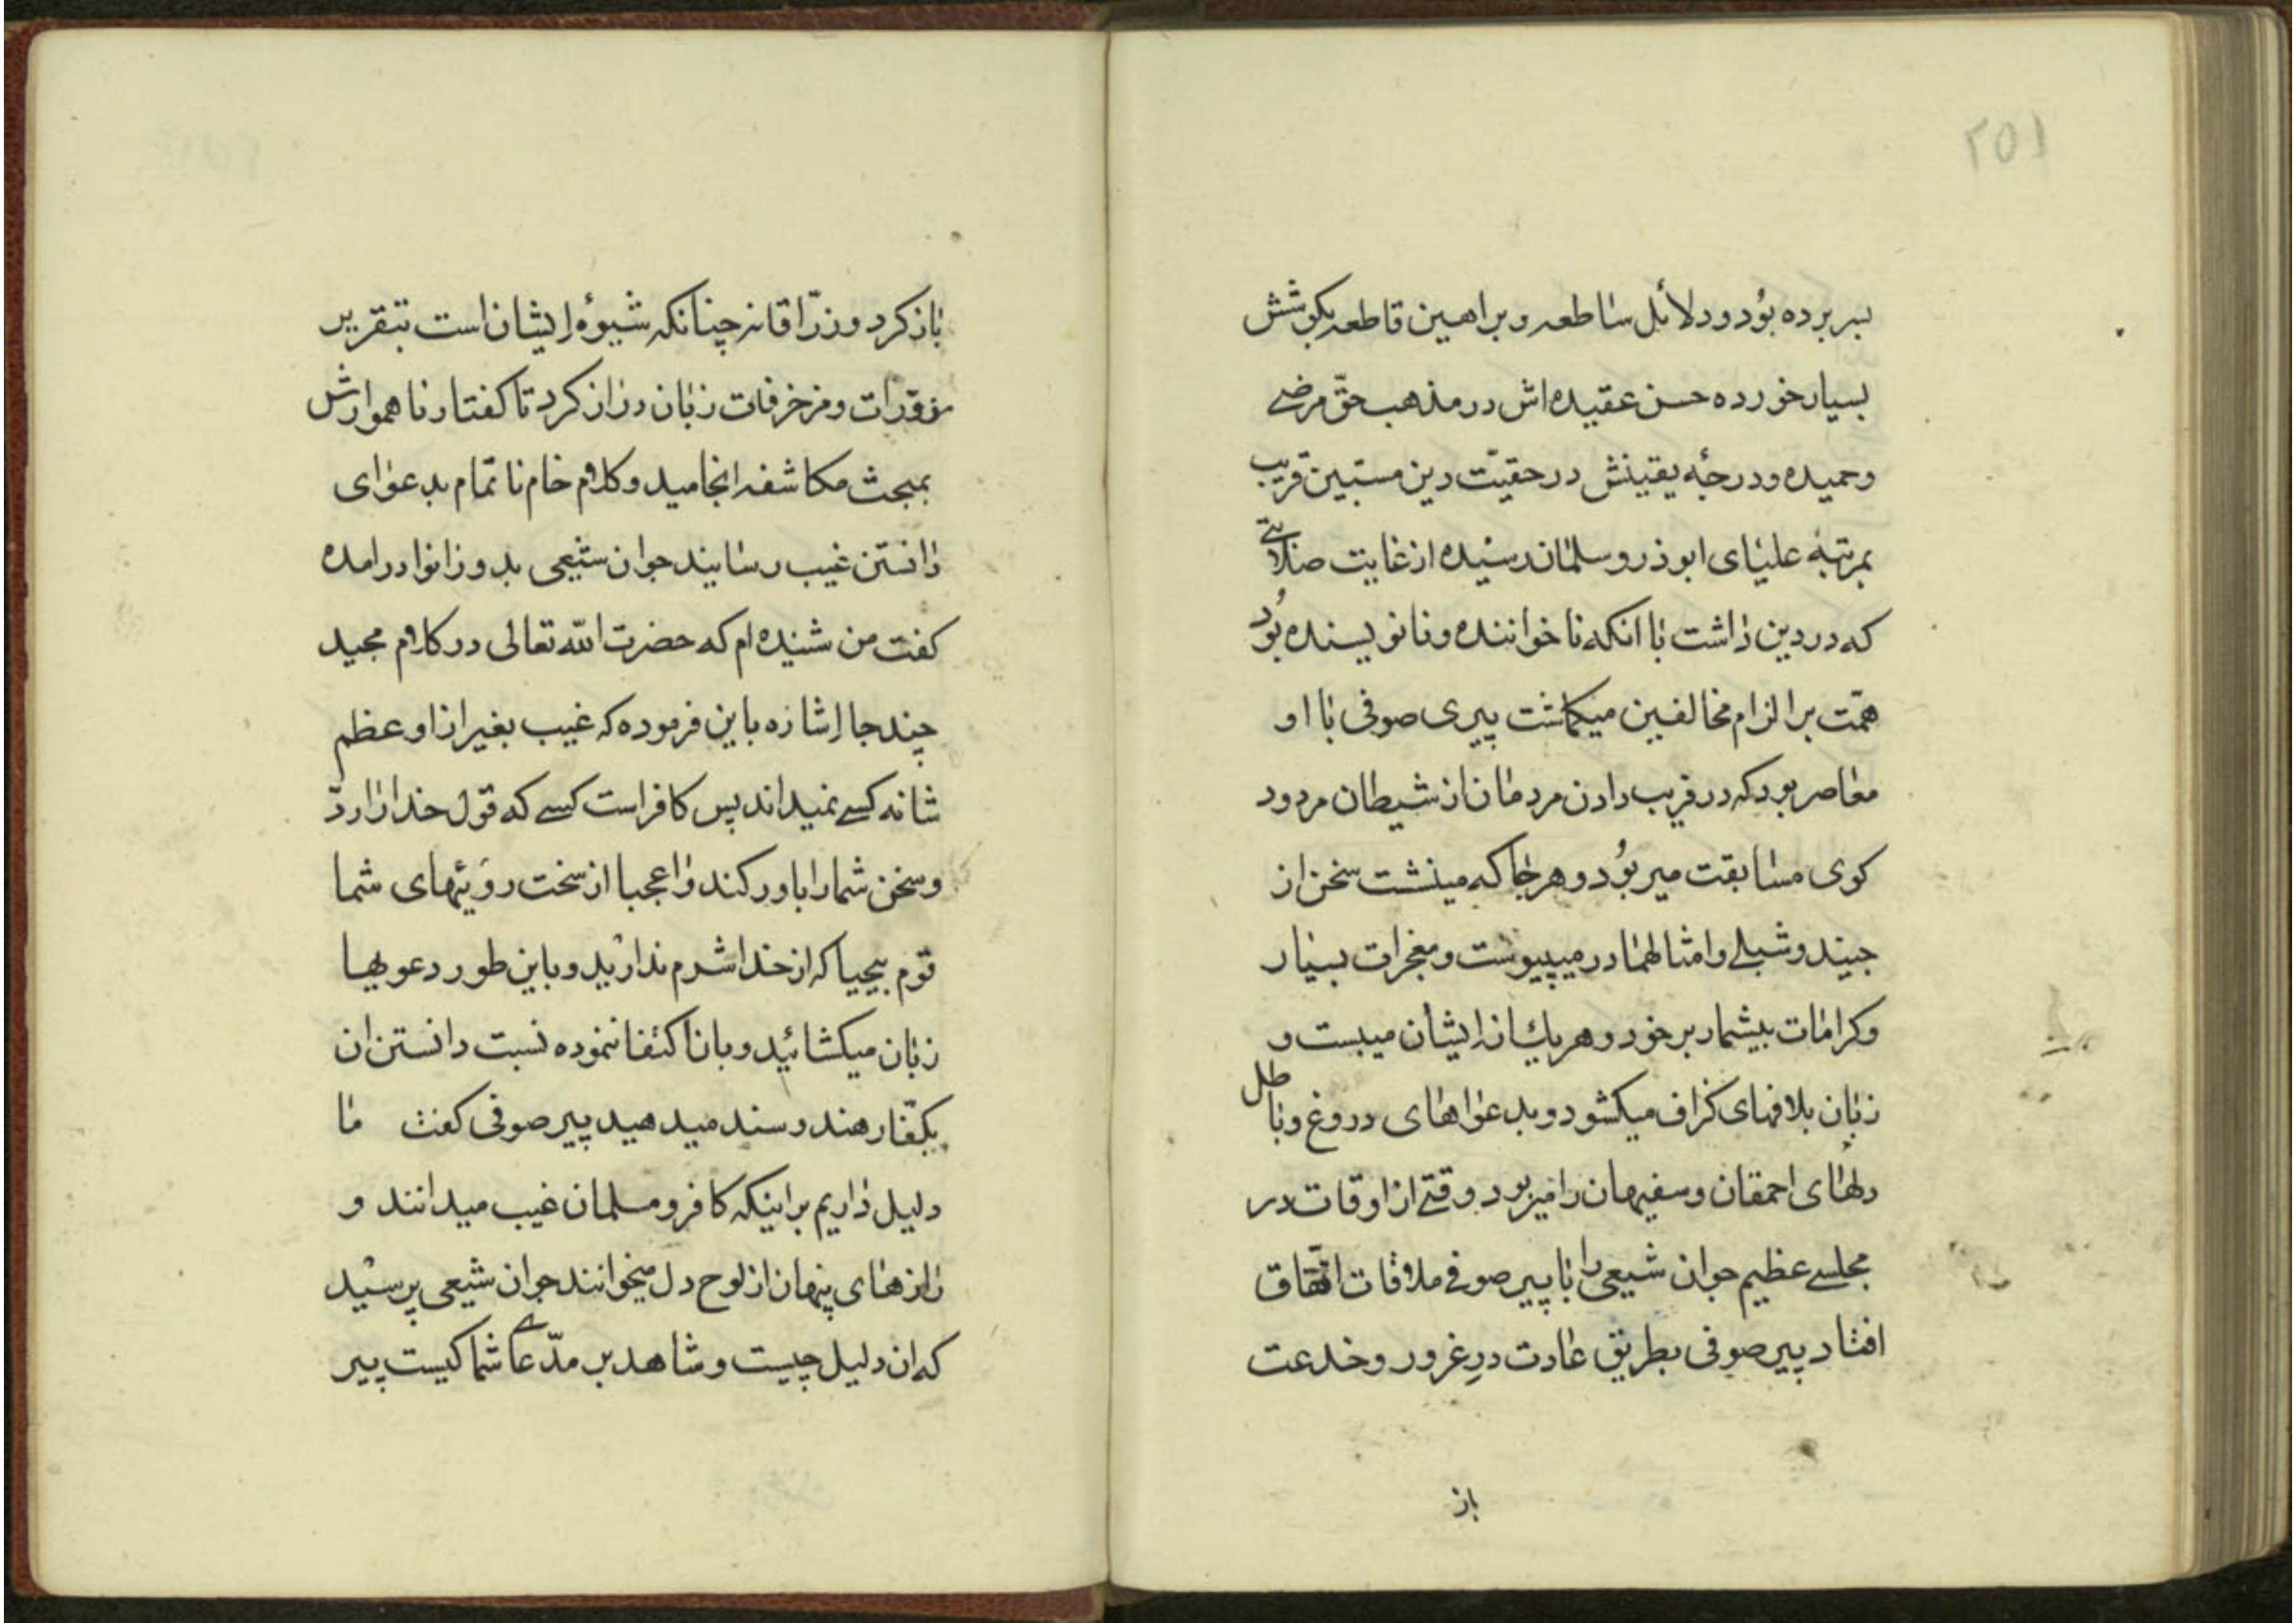 ۲۵۱
بسر برده بُود و دلائل ساطعه و براهین قاطعه بکوشش
بسیار خورده حسن عقیده‌اش در مذهب حقّ مرضی
و حمیده و درجهٔ یقینش در حقیّت دین مستبین قریب
بمرتبهٔ علیای ابوذر و سلمان رسیده از غایت صلابتی
که در دین داشت با انکه ناخواننده و نانویسنده بُود
همّت بر الزام مخالفین میکماشت پیری صوفی با او
معاصر بود که در فریب دادن مردمان از شیطان مردود
کوی مسابقت میربُود و هرجا که مینشست سخن از
جنید و شبلی و امثالهما در میپیوست و معجزات بسیار
و کرامات بیشمار بر خود و هریك از ایشان میبست و
زبان بلافهای کزاف میکشود و بدعواهای دروغ و باطل
دلهای احمقان و سفیهان را میربود وقتی از اوقات در
مجلسی عظیم جوان شیعی را با پیر صوفی ملاقات اتّفاق
افتاد پیر صوفی بطریق عادت درِ غرور و خدعت
باز
باز کرد و زرّاقانه چنانکه شیوهٔ ایشان است بتقریر
مزوّرات و مزخرفات زبان دراز کرد تا کفتار ناهموارش
بمبحث مکاشفه انجامید و کلام خام ناتمام بدعوای
دانستن غیب رسانید جوان شیعی بدو زانو درامده
کفت من شنیده‌ام که حضرت الله تعالی در کلام مجید
چند جا اشاره باین فرموده که غیب بغیر از او عظم
شانه کسی نمیداند پس کافر است کسی که قول خدا را ردّ
و سخن شما را باور کند واعجبا از سخت روئیهای شما
قوم بیحیا که از خدا شرم ندارید و باین طور دعویها
زبان میکشائید و بان اکتفا ننموده نسبت دانستن ان
بکفّار هند و سند میدهید پیر صوفی کفت ما
دلیل داریم بر اینکه کافر و مسلمان غیب میدانند و
رازهای پنهان از لوح دل میخوانند جوان شیعی پرسید
که ان دلیل چیست و شاهد بر مدّعای شما کیست پیر